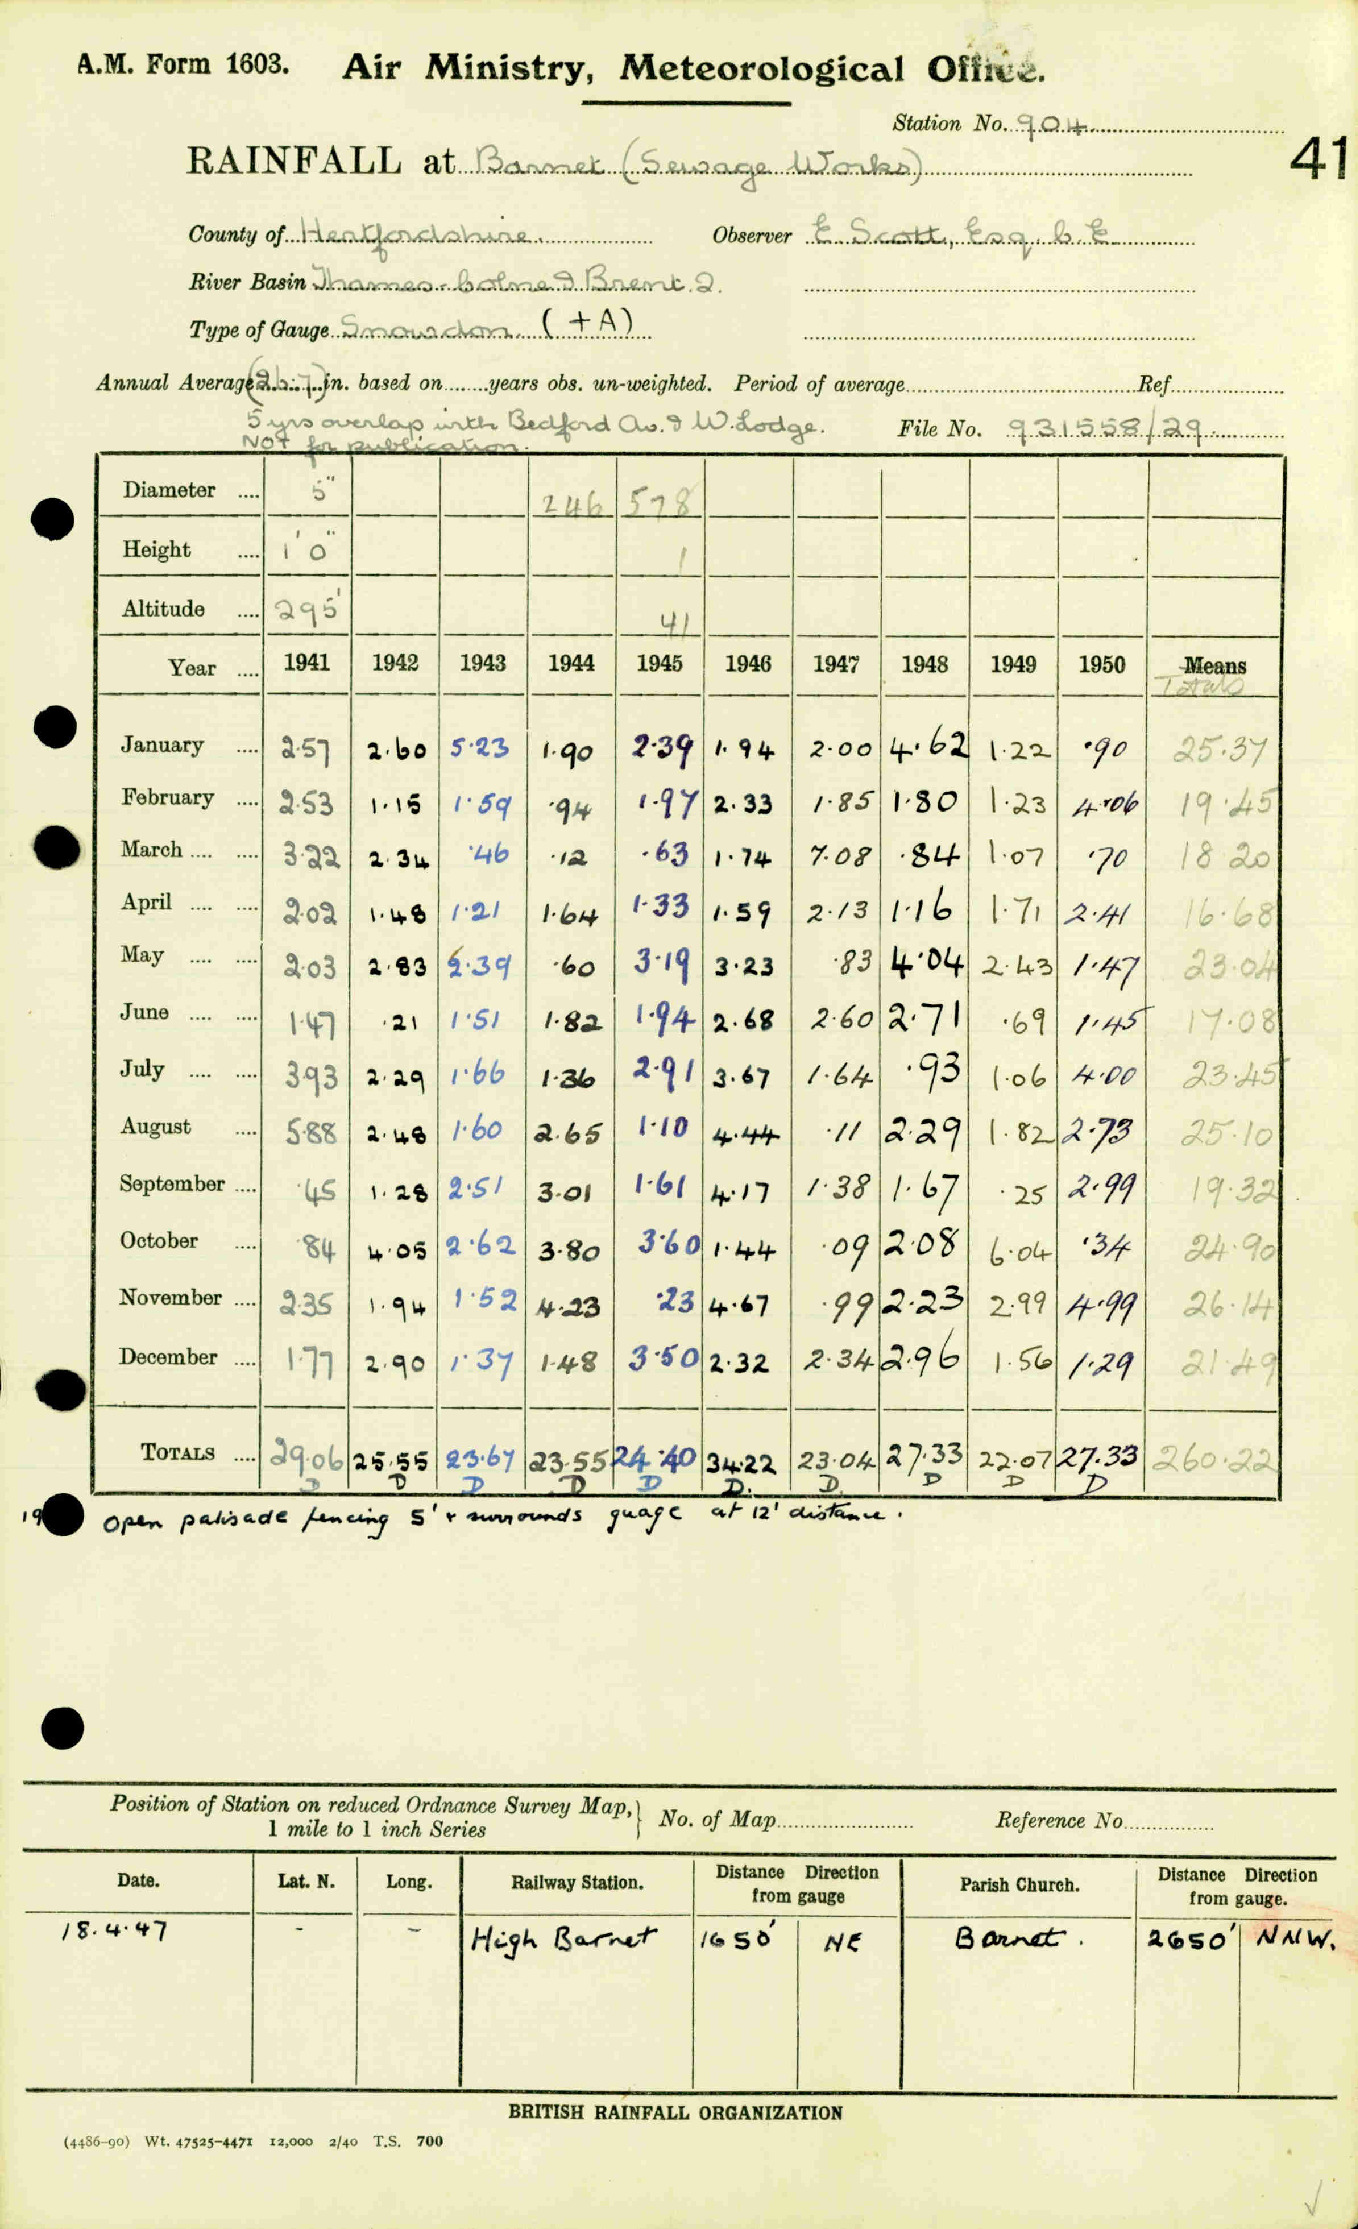 A.M. Form 1603. Air Ministry, Meteorological Office.
Station No. 904
41
RAINFALL at Barnet (Sewage Works)
County of Hertfordshire. Observer E Scott, Esq. C. E.
River Basin Thames - Colne & Brent. 2.
Type of Gauge Snowdon. (+A)
Annual Average (26.7) in. based on years obs. un-weighted. Period of average Ref.
5 yrs overlap with Bedford Av. & W. Lodge. File No. 931558/29.
NOT for publication.
Diameter 5" 246 578
Height 1' 0" 1
Altitude 295' 41
Year 1941 1942 1943 1944 1945 1946 1947 1948 1949 1950 Means
Totals
January 2.57 2.60 5.23 1.90 2.39 1.94 2.00 4.62 1.22 .90 25.37
February 2.53 1.15 1.59 .94 1.97 2.33 1.85 1.80 1.23 4.06 19.45
March 3.22 2.34 .46 .12 .63 1.74 7.08 .84 1.07 .70 18 20
April 2.02 1.48 1.21 1.64 1.33 1.59 2.13 1.16 1.71 2.41 16.68
May 2.03 2.83 2.39 .60 3.19 3.23 .83 4.04 2.43 1.47 23.04
June 1.47 .21 1.51 1.82 1.94 2.68 2.60 2.71 .69 1.45 17.08
July 3.93 2.29 1.66 1.36 2.91 3.67 1.64 .93 1.06 4.00 23.45
August 5.88 2.48 1.60 2.65 1.10 4.44 .11 2.29 1.82 2.73 25.10
September .45 1.28 2.51 3.01 1.61 4.17 1.38 1.67 .25 2.99 19.32
October .84 4.05 2.62 3.80 3.60 1.44 .09 2.08 6.04 .34 24.90
November 2.35 1.94 1.52 4.23 .23 4.67 .99 2.23 2.99 4.99 26.14
December 1.77 2.90 1.37 1.48 3.50 2.32 2.34 2.96 1.56 1.29 21.49
TOTALS 29.06 25.55 23.67 23.55 24.40 34.22 23.04 27.33 22.07 27.33 260.22
D D D D D D. D. D D D
19 Open palisade fencing 5' & surrounds guage at 12' distance.
Position of Station on reduced Ordnance Survey Map, No. of Map Reference No.
1 mile to 1 inch Series
Date. Lat. N. Long. Railway Station. Distance Direction from gauge Parish Church. Distance Direction from gauge.
18.4.47 - - High Barnet 1650' NE Barnet. 2650' NNW.
BRITISH RAINFALL ORGANIZATION
(4486-90) Wt. 47525-4471 12,000 2/40 T.S. 700